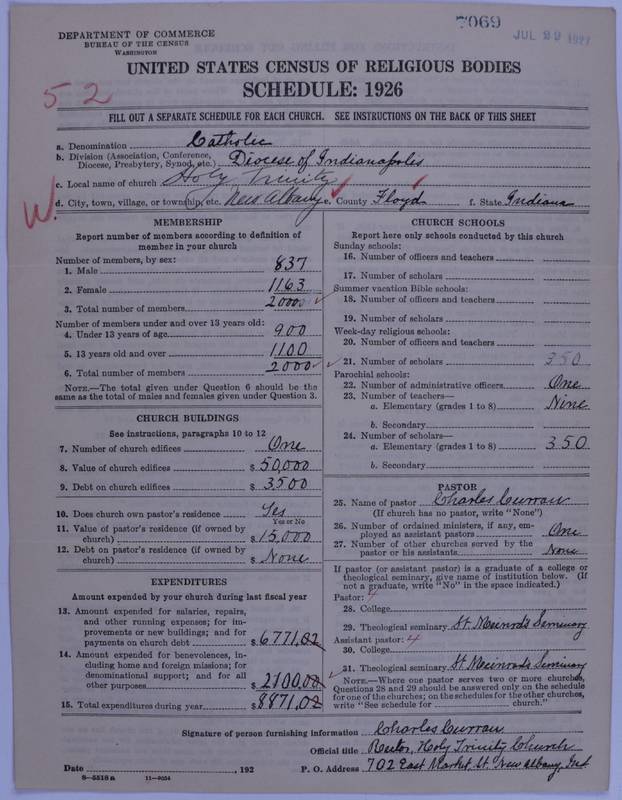 7069
JUL 29 1927
DEPARTMENT OF COMMERCE
BUREAU OF THE CENSUS
WASHINGTON
UNITED STATES CENSUS OF RELIGIOUS BODIES
SCHEDULE: 1926
52
FILL OUT A SEPARATE SCHEDULE FOR EACH CHURCH. SEE INSTRUCTIONS ON THE BACK OF THIS SHEET
a. Denomination Catholic
b. Division (Association, Conference, Diocese, Presbytery, Synod, etc.) Diocese of Indianapolis
c. Local name of church Holy Trinity
d. City, town, village, or township, etc. New Albany e. County Floyd f. State Indiana
W
MEMBERSHIP
Report number of members according to definition of
member in your church
Number of members, by sex:
1. Male 837
2. Female 1163
3. Total number of members 2000
Number of members under and over 13 years old:
4. Under 13 years of age 900
5. 13 years old and over 1100
6. Total number of members 2000
NOTE.—The total given under Question 6 should be the
same as the total of males and females given under Question 3.
CHURCH BUILDINGS
See instructions, paragraphs 10 to 12
7. Number of church edifices One
8. Value of church edifices $ 50,000
9. Debt on church edifices $ 3500
10. Does church own pastor's residence Yes
Yes or No
11. Value of pastor's residence (if owned by
church) $ 15,000
12. Debt on pastor's residence (if owned by
church) $ None
EXPENDITURES
Amount expended by your church during last fiscal year
13. Amount expended for salaries, repairs,
and other running expenses; for im-
provements or new buildings; and for
payments on church debt $ 6771.02
14. Amount expended for benevolences, in-
cluding home and foreign missions; for
denominational support; and for all
other purposes $ 2100.00
15. Total expenditures during year $ 8871.02
CHURCH SCHOOLS
Report here only schools conducted by this church
Sunday schools:
16. Number of officers and teachers
17. Number of scholars
Summer vacation Bible schools:
18. Number of officers and teachers
19. Number of scholars
Week-day religious schools:
20. Number of officers and teachers
21. Number of scholars 350
Parochial schools:
22. Number of administrative officers One
23. Number of teachers—
a. Elementary (grades 1 to 8) Nine
b. Secondary
24. Number of scholars—
a. Elementary (grades 1 to 8) 350
b. Secondary
PASTOR
25. Name of pastor Charles Curran
(If church has no pastor, write "None")
26. Number of ordained ministers, if any, em-
ployed as assistant pastors One
27. Number of other churches served by the
pastor or his assistants None
If pastor (or assistant pastor) is a graduate of a college or
theological seminary, give name of institution below. (If
not a graduate, write "No" in the space indicated.)
Pastor: 4
28. College
29. Theological seminary St Meinrads Seminary
Assistant pastor: 4
30. College
31. Theological seminary St Meinrads Seminary
NOTE.—Where one pastor serves two or more churches,
Questions 28 and 29 should be answered only on the schedule
for one of the churches; on the schedules for the other churches,
write "See schedule for church."
Signature of person furnishing information Charles Curran
Official title Rector, Holy Trinity Church
Date , 192 P. O. Address 702 East Market St. New Albany, Ind
8—5518a 11—9034